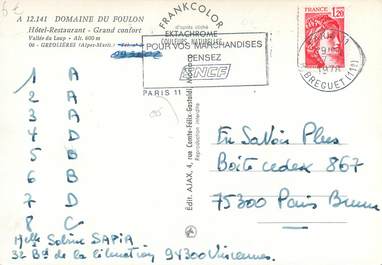 A 12.141 DOMAINE DU FOULON
Hôtel-Restaurant - Grand confort
Vallée du Loup - Alt. 600 m
06 - GRÉOLIÈRES (Alpes-Marit.)
1 A
2 A
3 A
4 D
5 B
6 B
7 D
8 C
Melle Sabine SAPIA
32 Bd de la Libération 94300 Vincennes
FRANKCOLOR
d'après cliché
EKTACHROME
COULEURS NATURELLES
POUR VOS MARCHANDISES
PENSEZ
SNCF
PARIS 11
Edit. AJAX, 4, rue Comte-Félix-Gastaldi, Monaco
Reproduction interdite
FRANCE
1,20
R. BREGUET (11e)
En Savoir Plus
Boite cedex 867
75300 Paris Brune